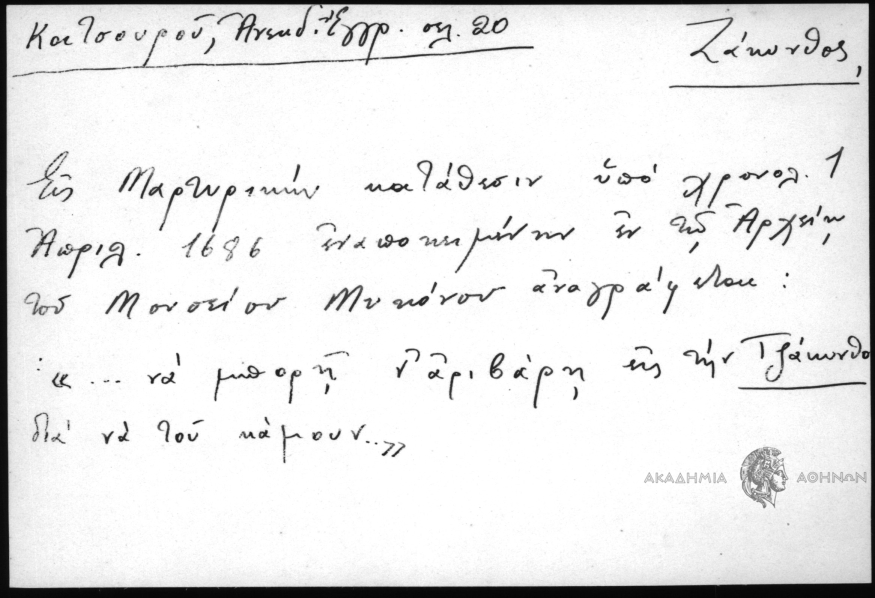 Κατσουροῦ, Ἀνεκδ. Ἔγγρ. σελ. 20
Ζάκυνθος,
Εἰς Μαρτυρικήν κατάθεσιν ὑπό χρονολ. 1
Ἀπριλ. 1686 ἐναποκειμένην ἐν τῷ Ἀρχείῳ
τοῦ Μουσείου Μυκόνου ἀναγράφεται :
« ... νά μπορῇ ν' ἀριβάρῃ εἰς τήν Τζάκυνθο
διά νά τοῦ κάμουν...»
ΑΚΑΔΗΜΙΑ ΑΘΗΝΩΝ